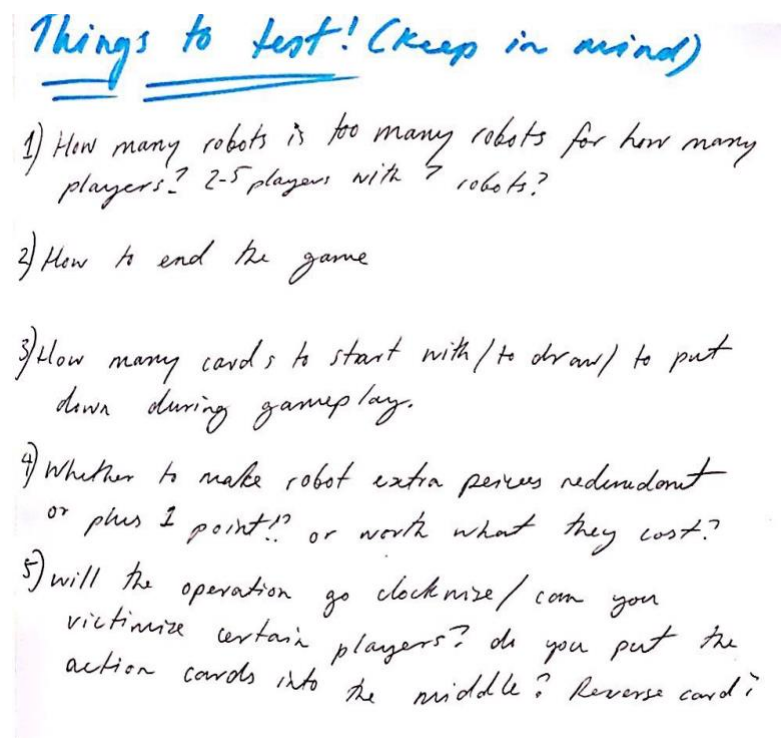 Things to test! (Keep in mind)
1) How many robots is too many robots for how many
players? 2-5 players with 7 robots?
2) How to end the game
3) How many cards to start with / to draw / to put
down during gameplay.
4) Whether to make robot extra peices redundant
or plus 1 point!? or worth what they cost?
5) will the operation go clockwise / can you
victimize certain players? do you put the
action cards into the middle? Reverse card?